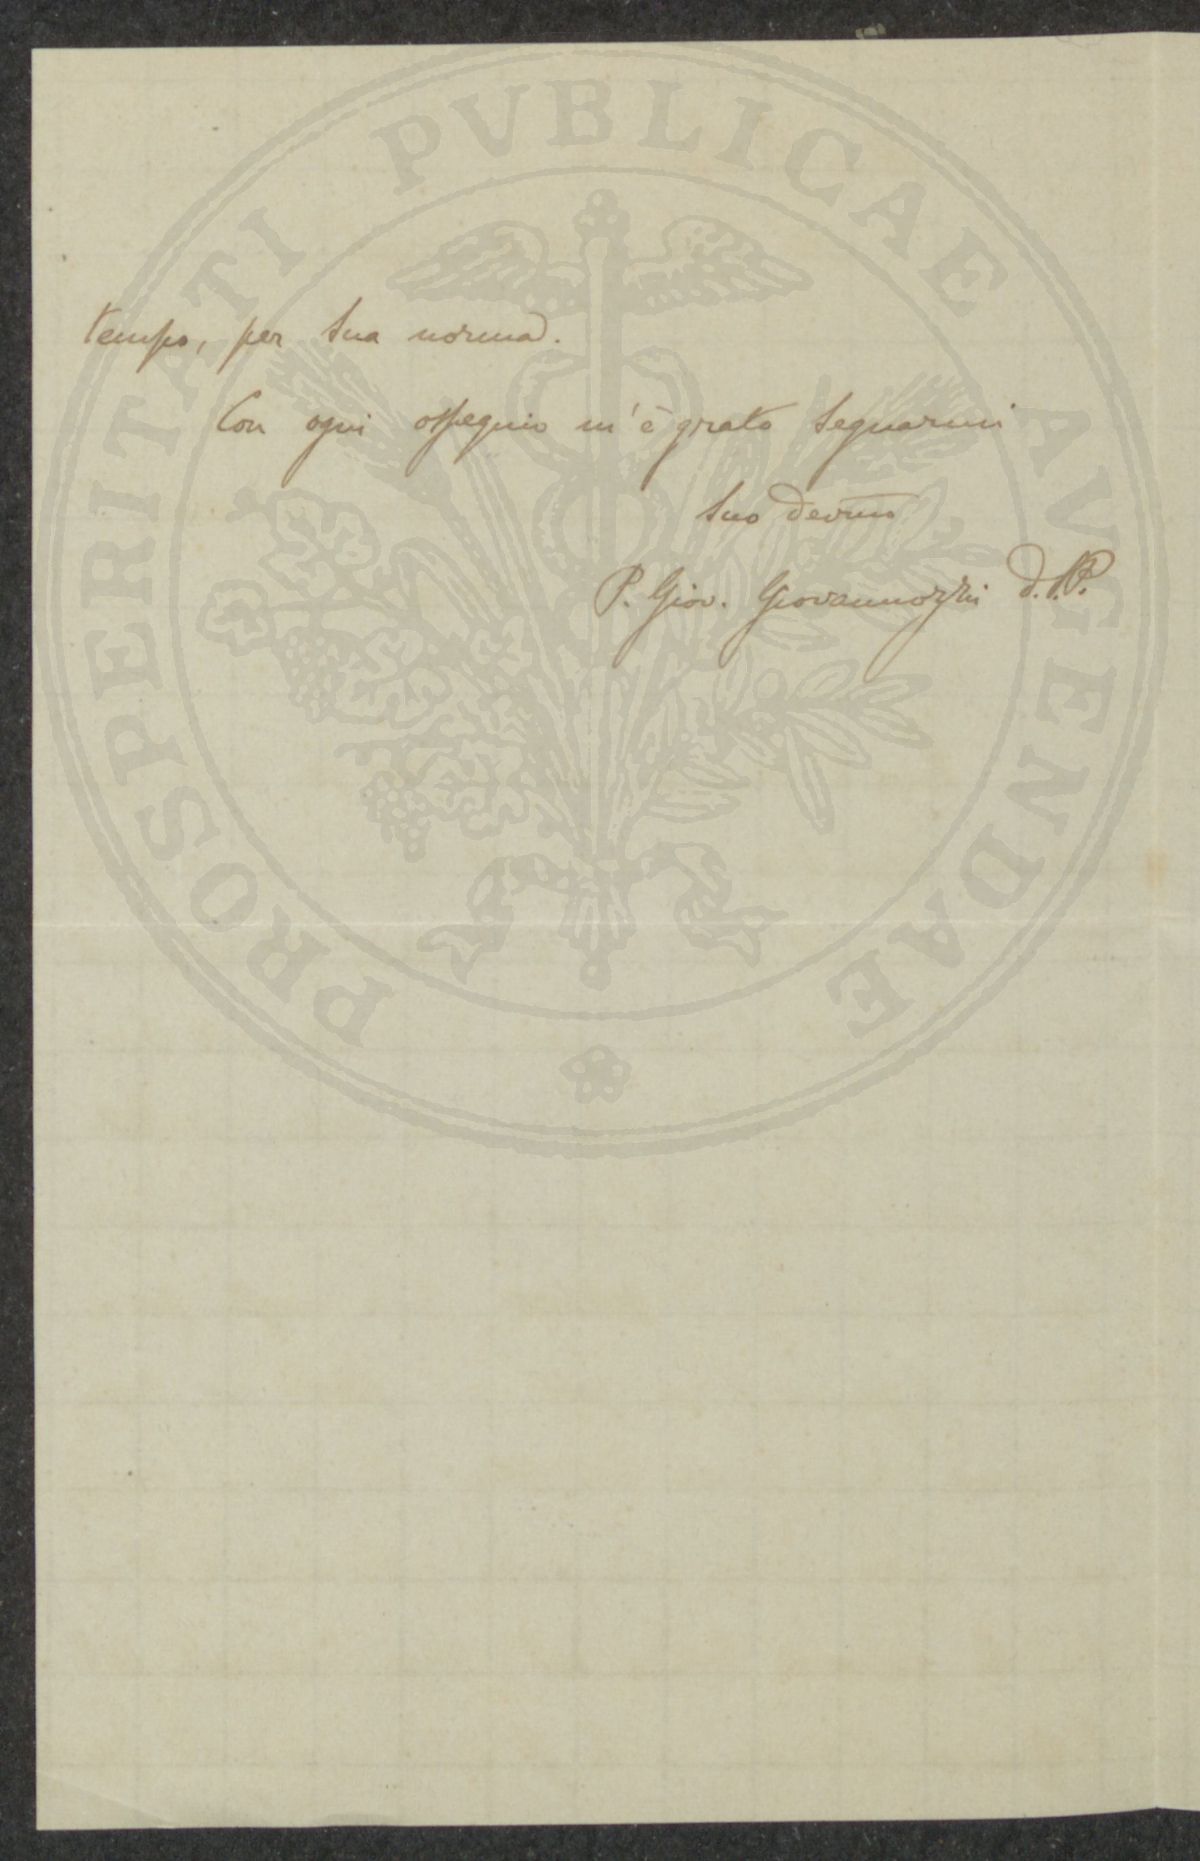 tempo, per Sua norma.
Con ogni ossequio m'è grato segnarmi
Suo devmo
P. Giov. Giovannozzi d.S.P.
PROSPERITATI PVBLICAE AVGENDAE